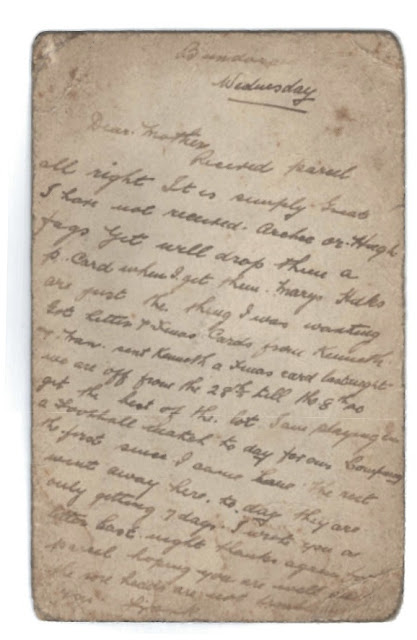 Bundoran
Wednesday
Dear Mother
Recived parcel
all right It is simply Great
I have not recused Archie or Hugh
fags yet will drop them a
P. Card when I get them. Marys
are just the thing I was wanting
Got letter & Xmas Cards from Kenneth
sent Kenneth a Xmas card last night
we are off from the 28th till the 8th so
get the best of the lot. I am playing in
a Football match to day for our Company
the first since I came here. The rest
went away here to day they are
only getting 7 days. I wrote you a
letter last night thanks again for
parcel hoping you are well and
the heads are not